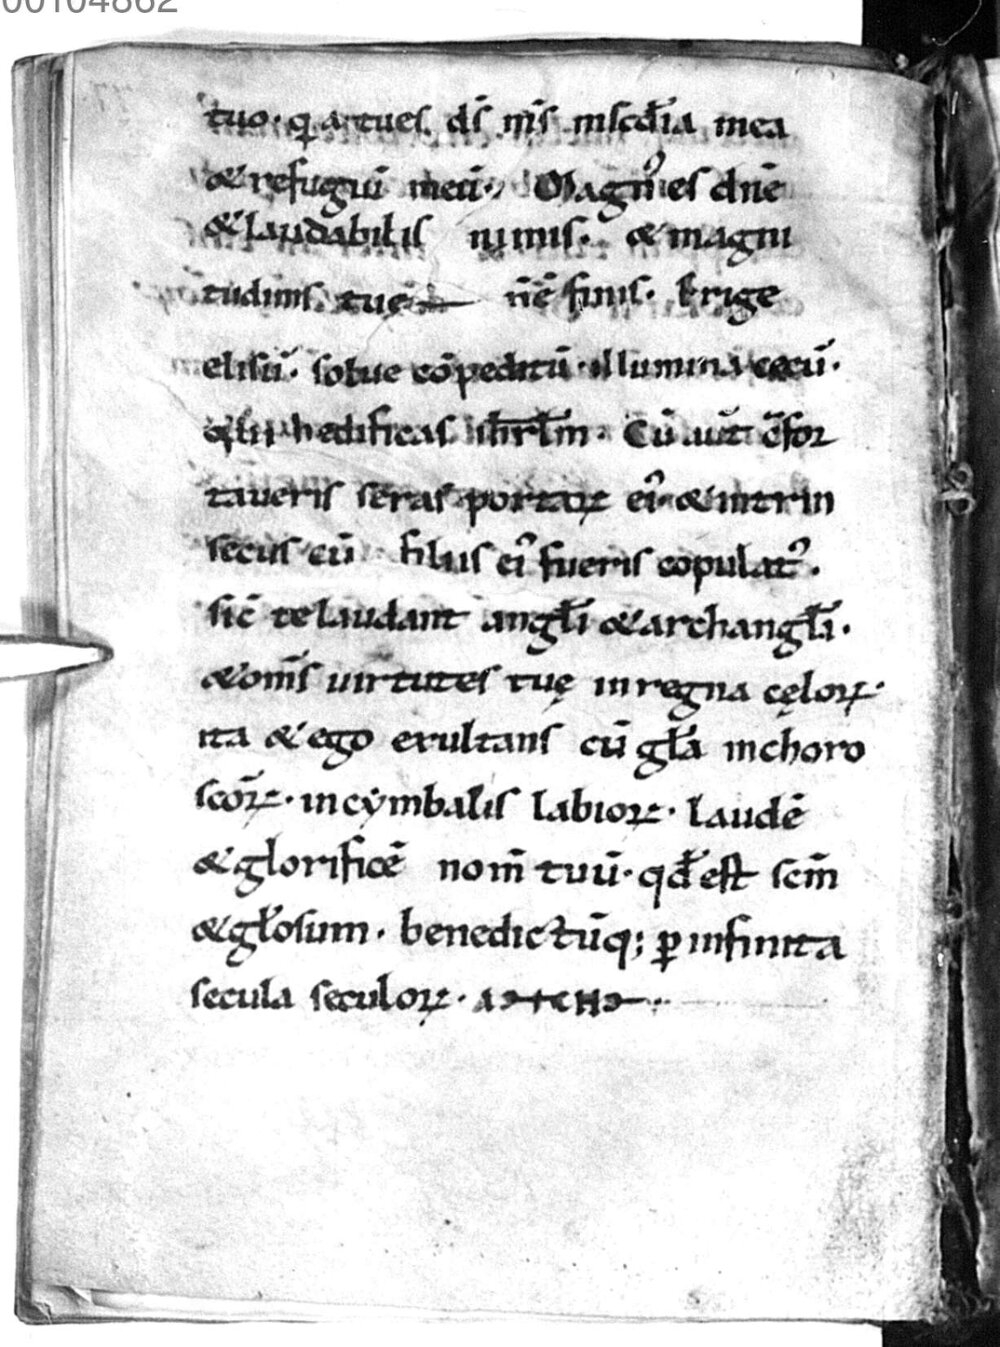 00104862
tuo· q̄a tu es d̄s m̄s m̄scd̄ia mea
& refugiū meū· Magn᾽ es dn̄e
& laudabilis nimis· & magni
tudinis tuę n̄ ē finis· Erige
elisū· solue cōpeditū· illumina cęcū·
hedificas ih̄rlm̄· Cū aūt c̄for
taueris seras portaꝝ ei᾽ & intrin
secus cū filiis ei᾽ fueris copulat᾽·
sic̄ te laudant angl̄i & archangl̄i·
& om̄s uirtutes tuę in regna cęloꝝ·
ita & ego exultans cū gl̄a in choro
sc̄oꝝ· in cymbalis labioꝝ· laudē
& glorificē nom̄ tuū· qd̄ est sc̄m
& gl̄osum· benedictūq; ꝑ infinita
secula seculoꝝ· AMEN·